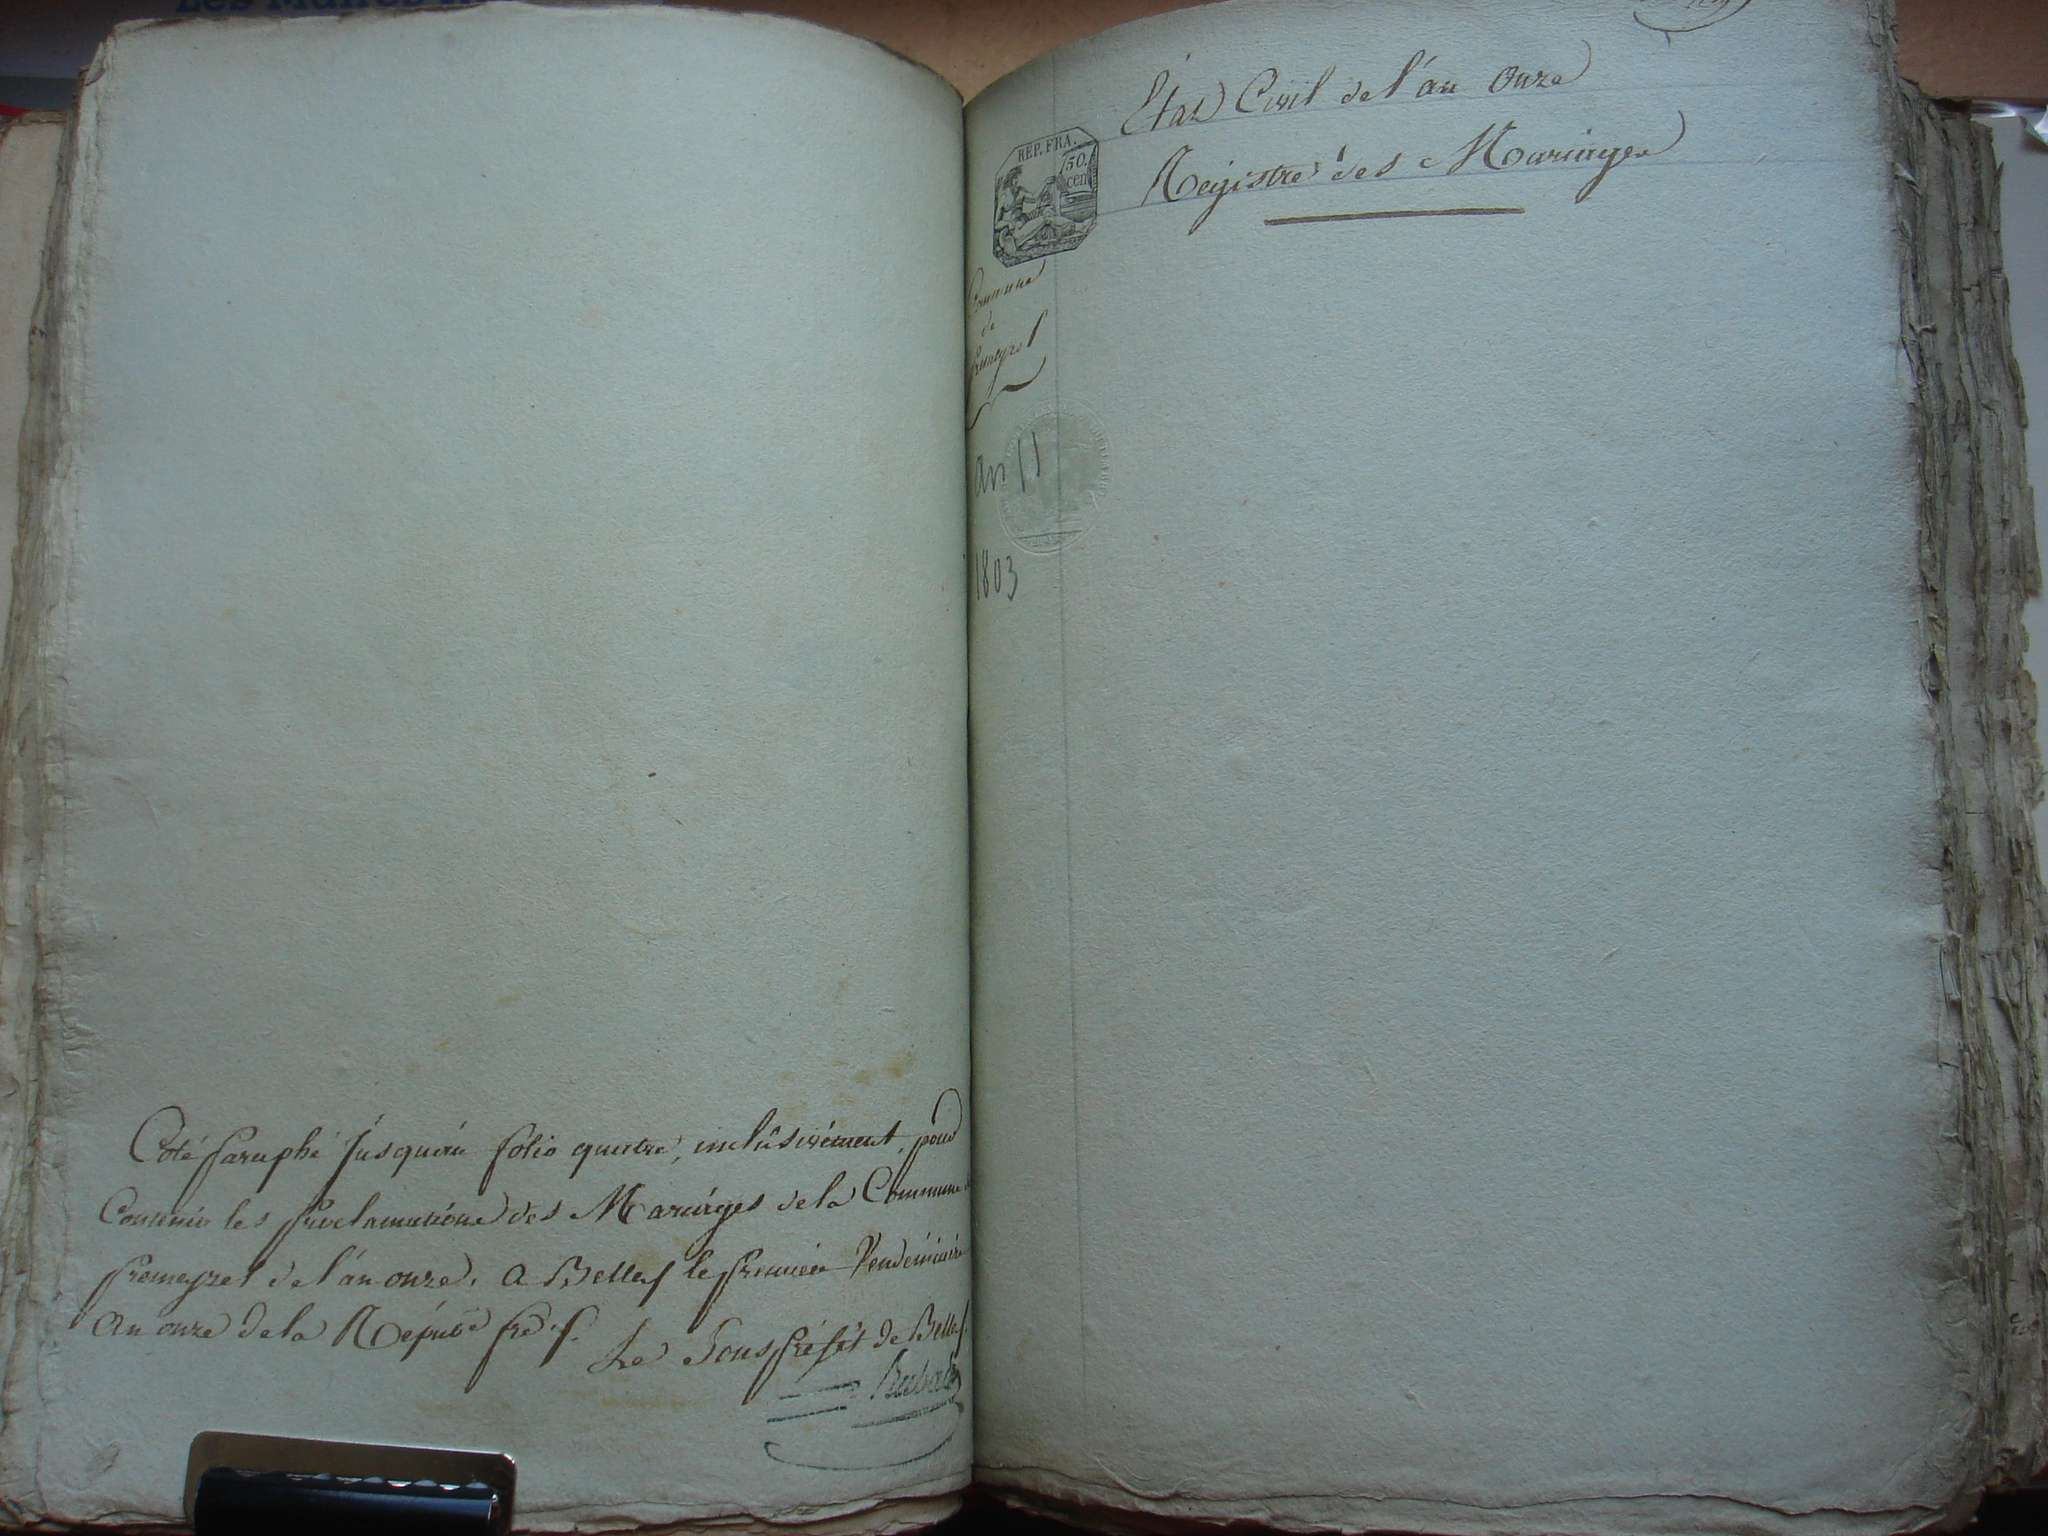 Coté Paraphé Jusqu'au folio quatre, inclusivement, pour
Contenir les Proclamations des Mariages de la Commune de
Premeyzel de l'an onze. A Belley le Premier Vendémiaire
An onze de la Répub.e fr.se
Le Sous Préfet de Belley
Etat Civil de l'an Onze
Registre des Mariages
REP. FRA.
50.
cen
Commune
de
Premeyzel
an 11
1803